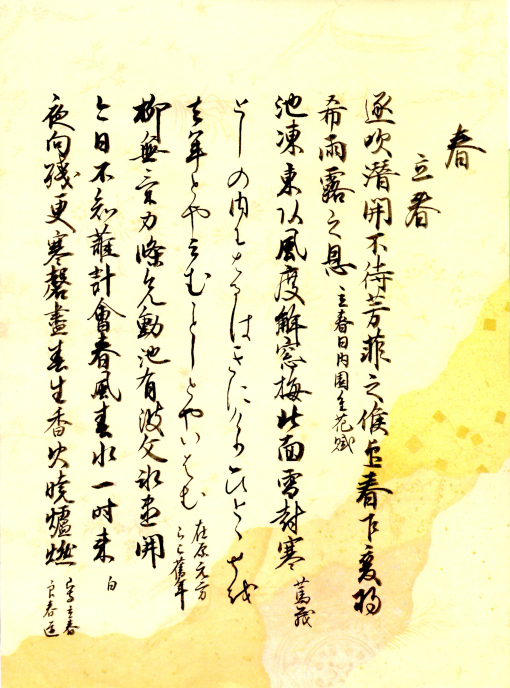 春
立春
逐吹潜開不待芳菲之候迎春乍変将
希雨露之恩 立春日内園進花賦
池凍東頭風度解窓梅北面雪封寒 篤茂
としの内にはるはきにけりひとゝせを
去年とやいはむことしとやいはむ 在原元方
舊年
柳無気力條先動池有波文氷尽開
今日不知誰計會春風春水一时来 白
夜向残更寒磬盡春生香火暁爐燃 立春
良春道